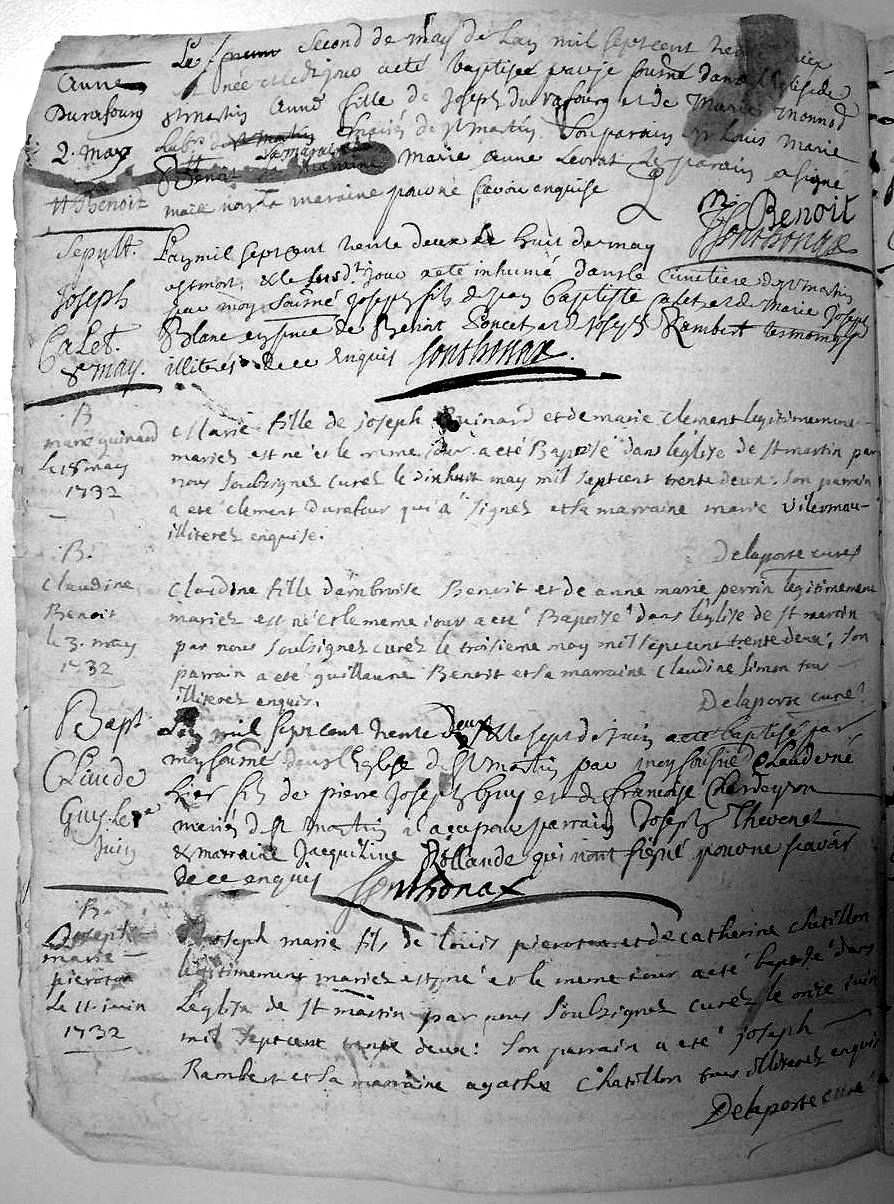 Anne
Durafourg
2. may
Le second de may de Lan mil sept cent
née et le dt jour a eté baptisée par je sousné dans l'Eglise de
st martin Anne fille de Joseph durafourg et de Marie monnod
mariés de st martin. Son parain Sr Louis Marie
Benoit la maraine Marie Anne Levrat le parain a signé
mais non la maraine pour ne scavoir enquise
M. Benoit
Sonthonax
Sepult.
Joseph
Calet.
8e may.
L'an mil sept cent trente deux le huit de may
est mort, & le susdt jour a eté inhumé dans le Cimetiere de st martin
par moy Sousné Joseph fils de Jean Baptiste Calet et de Marie Joseph
Blanc en pnce de Benoit Poncet et de Joseph Rambert tesmoins
illiterés de ce Enquis
Sonthonax.
B
marie guinard
le 18 may
1732
Marie fille de joseph Guinard et de marie clement legitimement
mariez est né et le meme jour a eté Baptisé dans l'eglise de st martin par
nous soubsignez curez le dixhuit may mil sept cent trente deux: son parrain
a eté clement durafour qui a signez et sa marraine marie
illiterez enquise.
Delaporte curez
B.
Claudine
Benoit
le 3. may
1732
Claudine fille d'ambroise Benoit et de anne marie perrin legitimement
mariez est né et le meme jour a eté Baptisé dans l'eglise de st martin
par nous soubsignez curez le troisieme may mil sept cent trente deux; son
parrain a eté guillaume Benoit et sa marraine Claudine Simon tous
illiterez enquis.
Delaporte curé
Bapt
Claude
Guy. Le 7e
Juin
L'an mil sept cent trente deux & le sept de juin a eté baptisé par
moy sousné dans l'Eglise de St Martin par moy sousigné Claude né
hier fils de pierre Joseph Guy et de francoise Chardeyron
mariés de st Martin a eu pour parrain Joseph Thevenet
& marraine Jacqueline Rollande qui n'ont signé pour ne scavoir
de ce enquis
Sonthonax
B.
Joseph
marie
pieroton
Le 11. juin
1732
Joseph marie fils de louis pieroton et de catherine chatillon
legitimement mariez est né et le meme jour a eté baptisé dans
l'eglise de st martin par nous soubsignez curez le onze juin
mil sept cent trente deux: son parrain a eté joseph
Rambert et sa marraine agathe Chatillon tous illiterez enquis
Delaporte curé